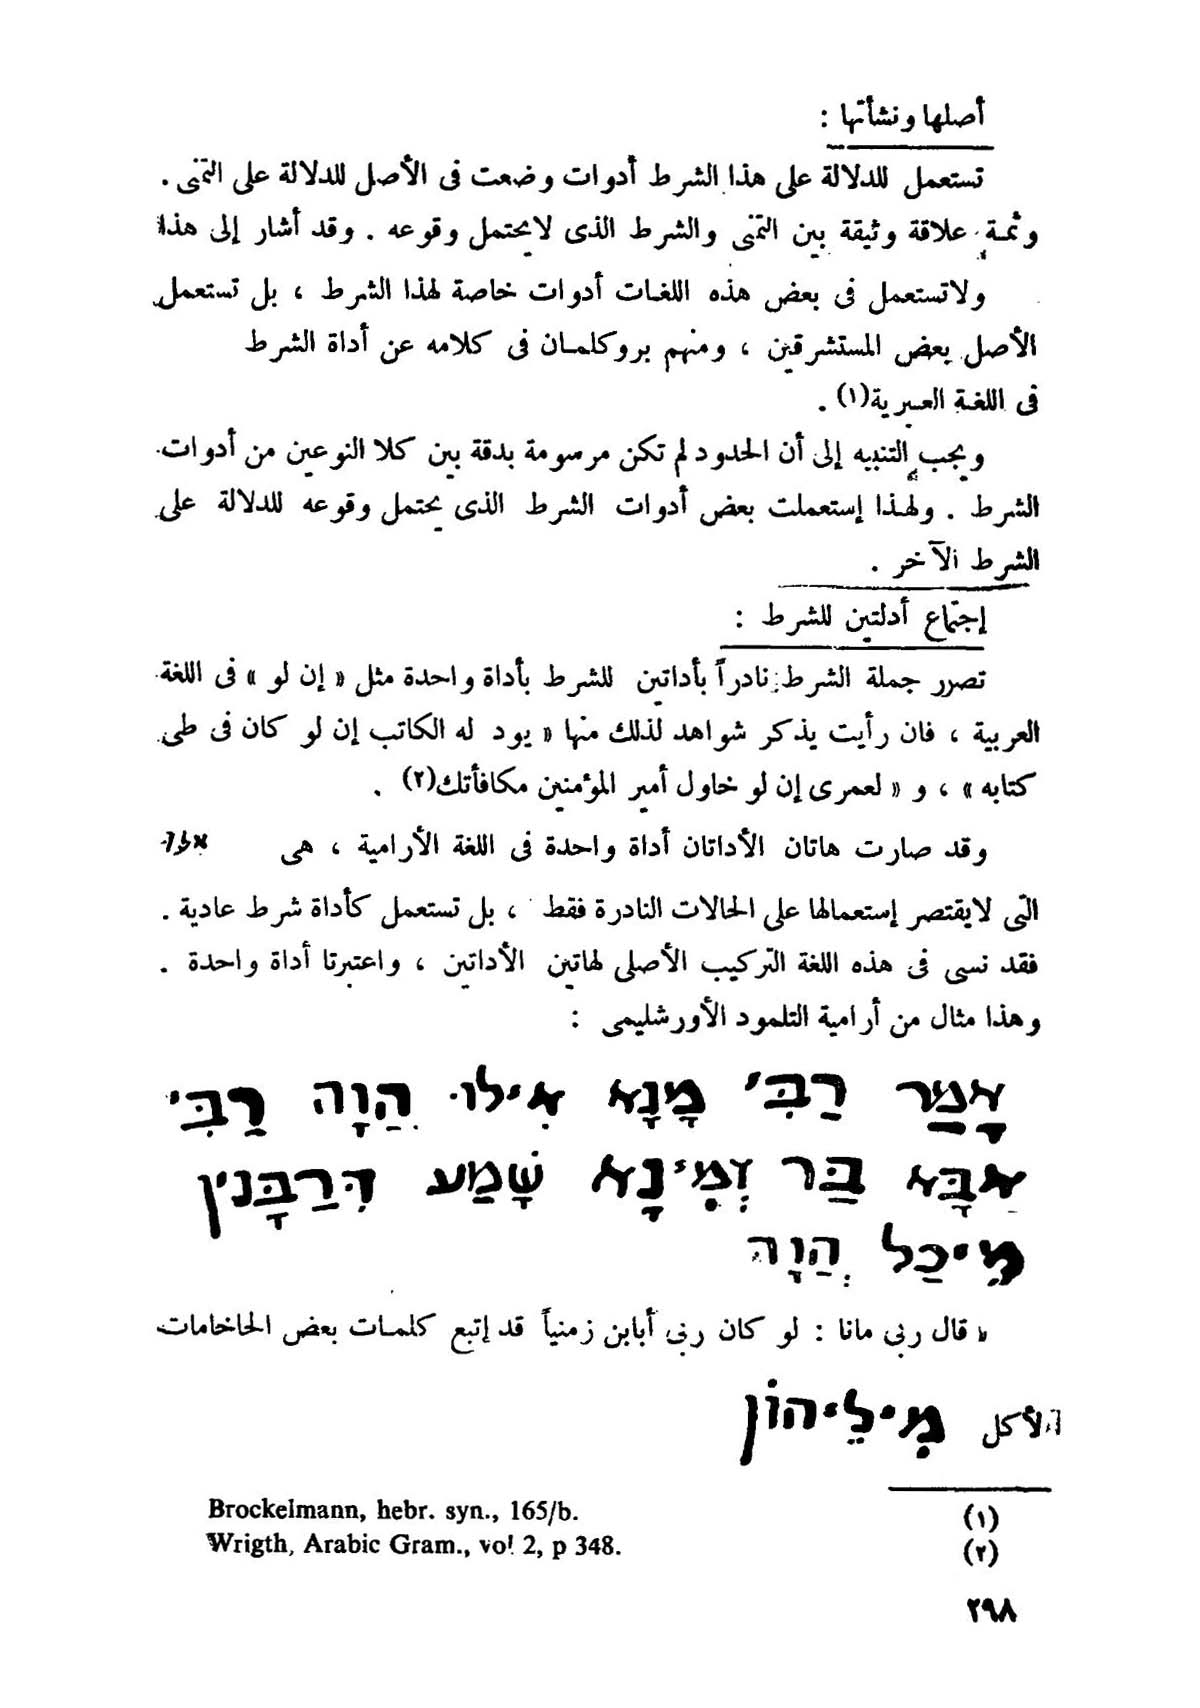 أصلها ونشأتها :
تستعمل للدلالة على هذا الشرط أدوات وضعت فى الأصل للدلالة على التمنى .
وثمة علاقة وثيقة بين التمنى والشرط الذى لايحتمل وقوعه . وقد أشار إلى هذا
ولاتستعمل فى بعض هذه اللغات أدوات خاصة لهذا الشرط ، بل تستعمل
الأصل بعض المستشرقين ، ومنهم بروكلمان فى كلامه عن أداة الشرط
فى اللغة العبرية(١) .
ويجب التنبيه إلى أن الحدود لم تكن مرسومة بدقة بين كلا النوعين من أدوات
الشرط . ولهذا إستعملت بعض أدوات الشرط الذى يحتمل وقوعه للدلالة على
الشرط الآخر .
إجتماع أدلتين للشرط :
تصرر جملة الشرط نادراً بأداتين للشرط بأداة واحدة مثل « إن لو » فى اللغة
العربية ، فان رأيت يذكر شواهد لذلك منها « يود له الكاتب إن لو كان فى طى
كتابه » ، و « لعمرى إن لو خاول أمير المؤمنين مكافأتك(٢) .
وقد صارت هاتان الأداتان أداة واحدة فى اللغة الأرامية ، هى
التى لايقتصر إستعمالها على الحالات النادرة فقط ، بل تستعمل كأداة شرط عادية .
فقد نسى فى هذه اللغة التركيب الأصلى لهاتين الأداتين ، واعتبرتا أداة واحدة .
وهذا مثال من أرامية التلمود الأورشليمى :
אָמַר רַבִּי מָנָא אִילוּ הֲוָה רַבִּי
אַבָּא בַּר זְמִינָא שָׁמַע דְּרַבָּנִין
מִיכַל הֲוָה
« قال ربى مانا : لو كان ربى أبابن زمنياً قد إتبع كلمات بعض الحاخامات
لأكل מִילֵיהוֹן
(١) Brockelmann, hebr. syn., 165/b.
(٢) Wrigth, Arabic Gram., vol 2, p 348.
٢٩٨